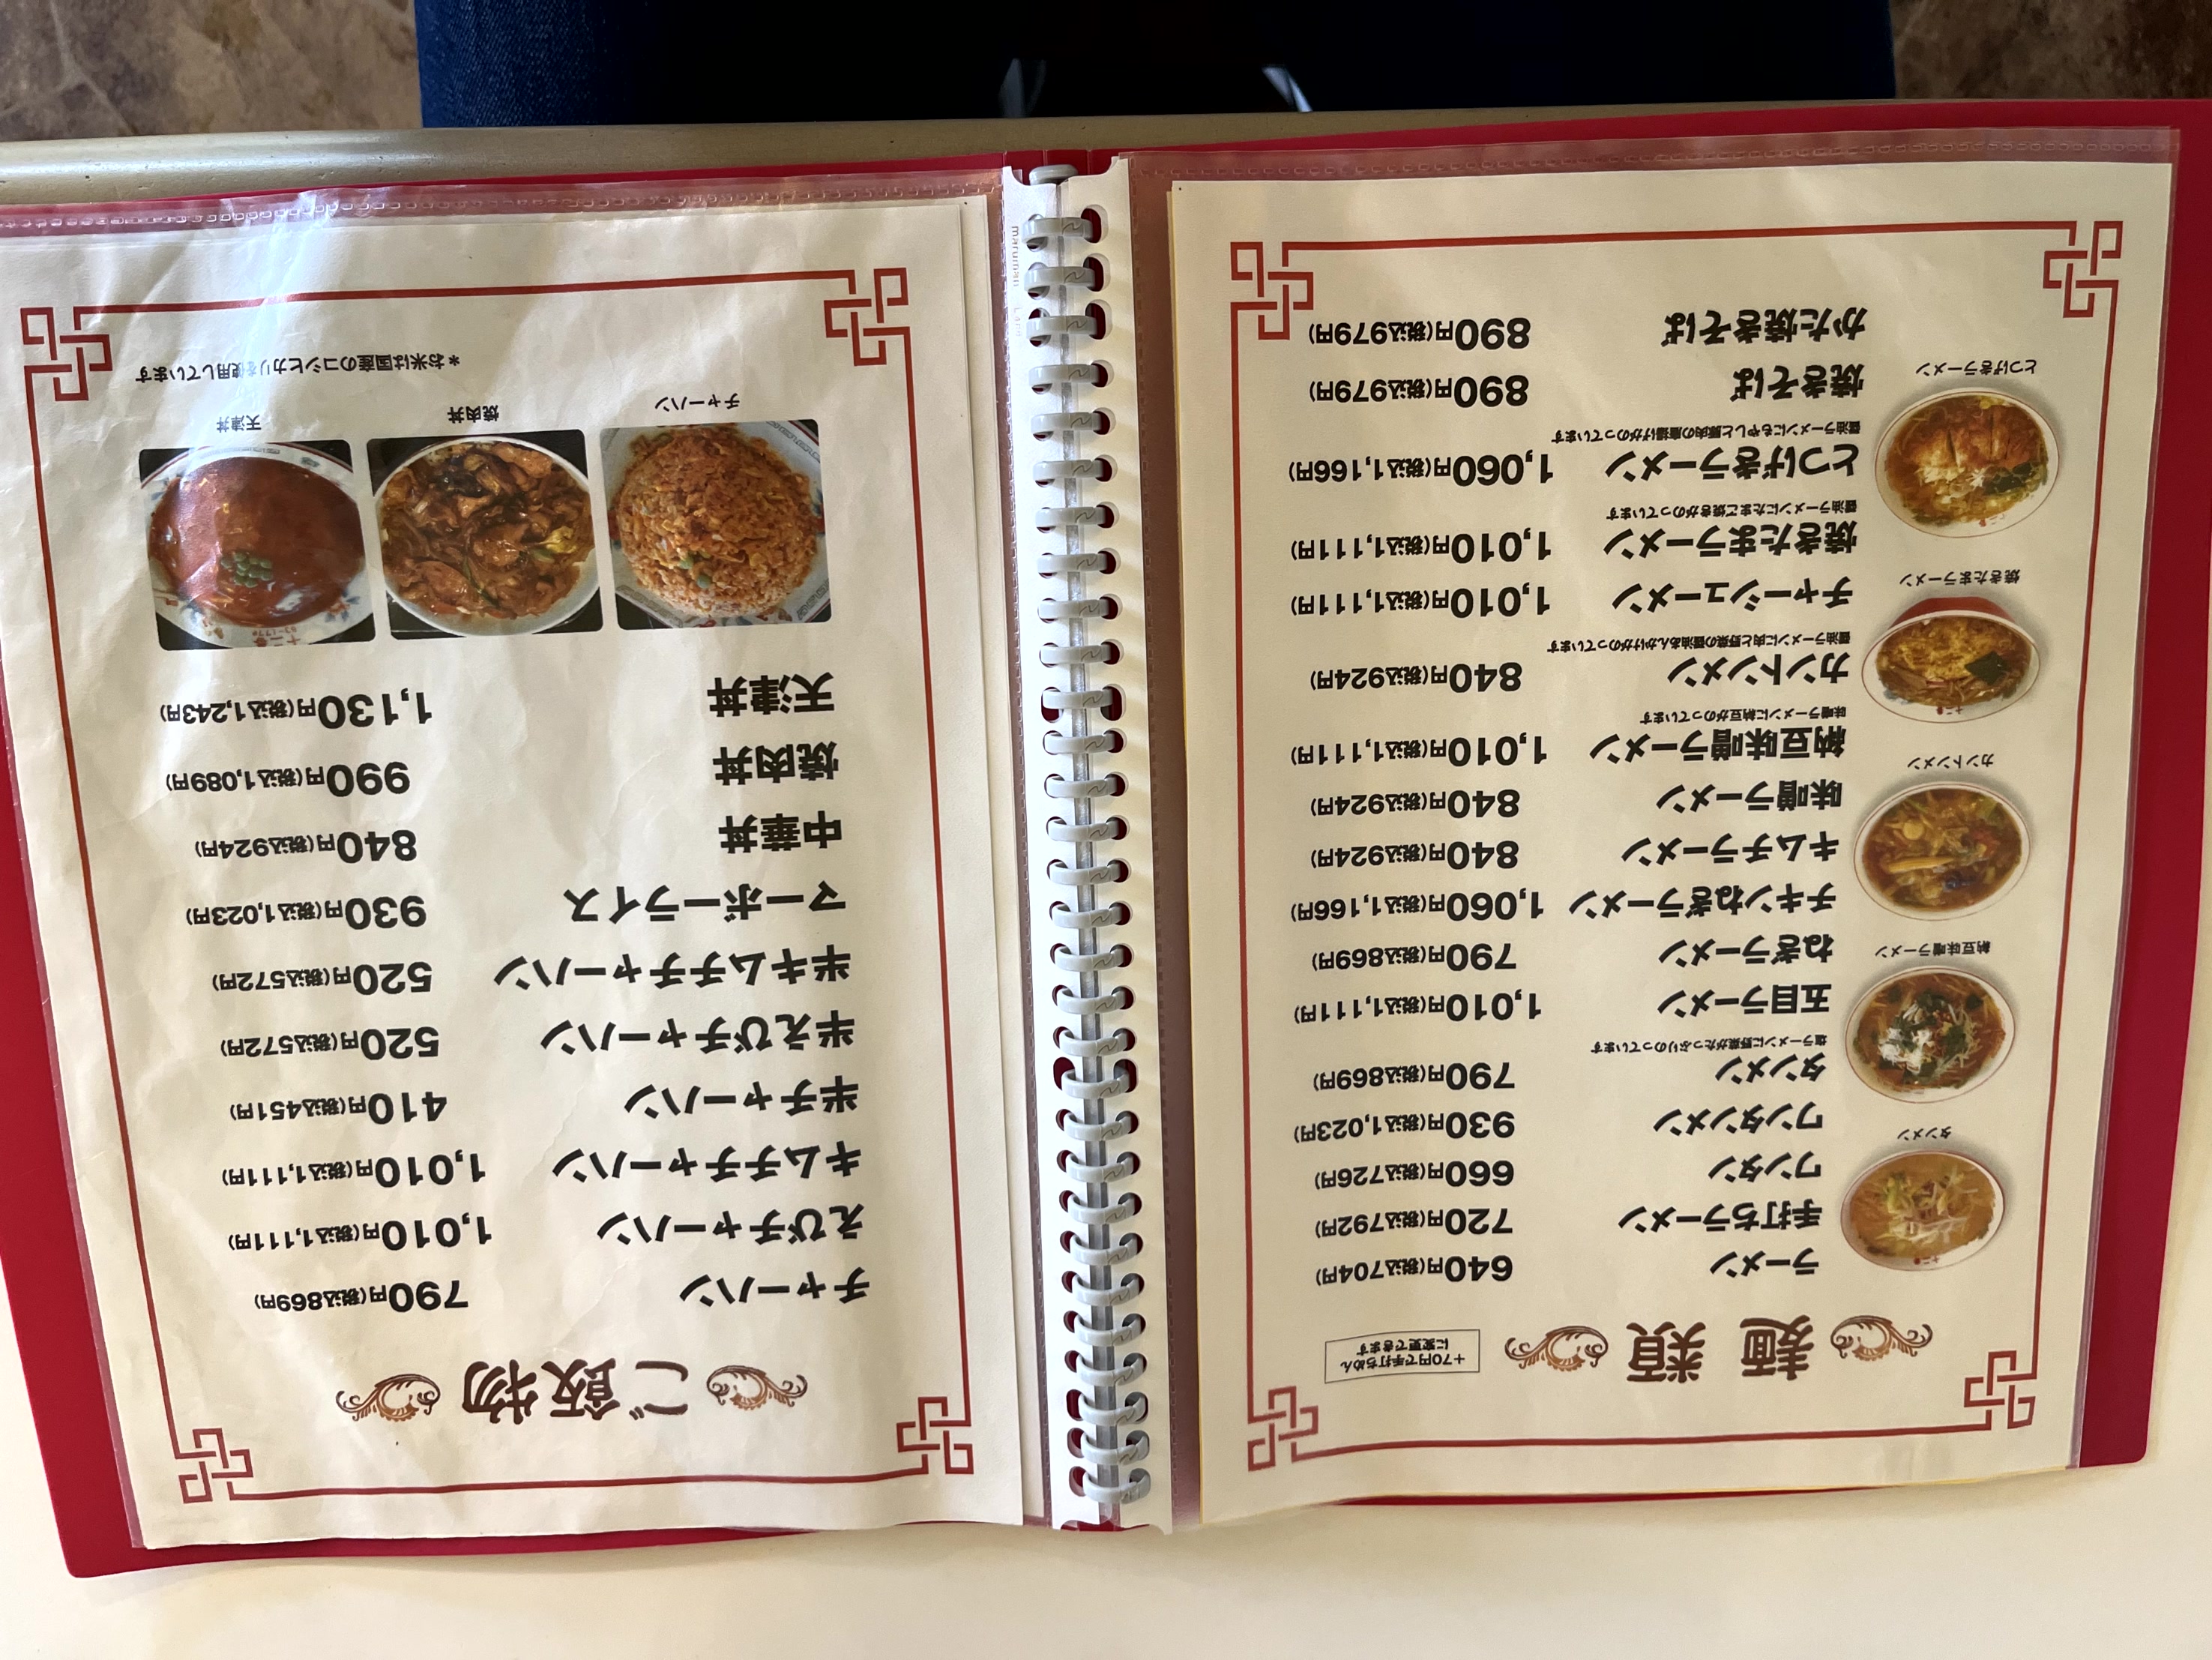 麺類
+70円で手打ちめん
に変更できます
ラーメン 640円(税込704円)
手打ちラーメン 720円(税込792円)
ワンタン 660円(税込726円)
ワンタンメン 930円(税込1,023円)
タンメン 790円(税込869円)
塩ラーメンに野菜がたっぷりのっています
五目ラーメン 1,010円(税込1,111円)
ねぎラーメン 790円(税込869円)
チキンねぎラーメン 1,060円(税込1,166円)
キムチラーメン 840円(税込924円)
味噌ラーメン 840円(税込924円)
納豆味噌ラーメン 1,010円(税込1,111円)
味噌ラーメンに納豆がのっています
カントンメン 840円(税込924円)
醤油ラーメンに肉と野菜の醤油あんかけがのっています
チャーシューメン 1,010円(税込1,111円)
焼きたまラーメン 1,010円(税込1,111円)
醤油ラーメンにたまご焼きがのっています
とつげきラーメン 1,060円(税込1,166円)
醤油ラーメンにもやしと豚肉の唐揚げがのっています
焼きそば 890円(税込979円)
かた焼きそば 890円(税込979円)
タンメン
納豆味噌ラーメン
カントンメン
焼きたまラーメン
とつげきラーメン
ご飯物
チャーハン 790円(税込869円)
えびチャーハン 1,010円(税込1,111円)
キムチチャーハン 1,010円(税込1,111円)
半チャーハン 410円(税込451円)
半えびチャーハン 520円(税込572円)
半キムチチャーハン 520円(税込572円)
マーボーライス 930円(税込1,023円)
中華丼 840円(税込924円)
焼肉丼 990円(税込1,089円)
天津丼 1,130円(税込1,243円)
チャーハン
焼肉丼
天津丼
*お米は国産のコシヒカリを使用しています
maruman